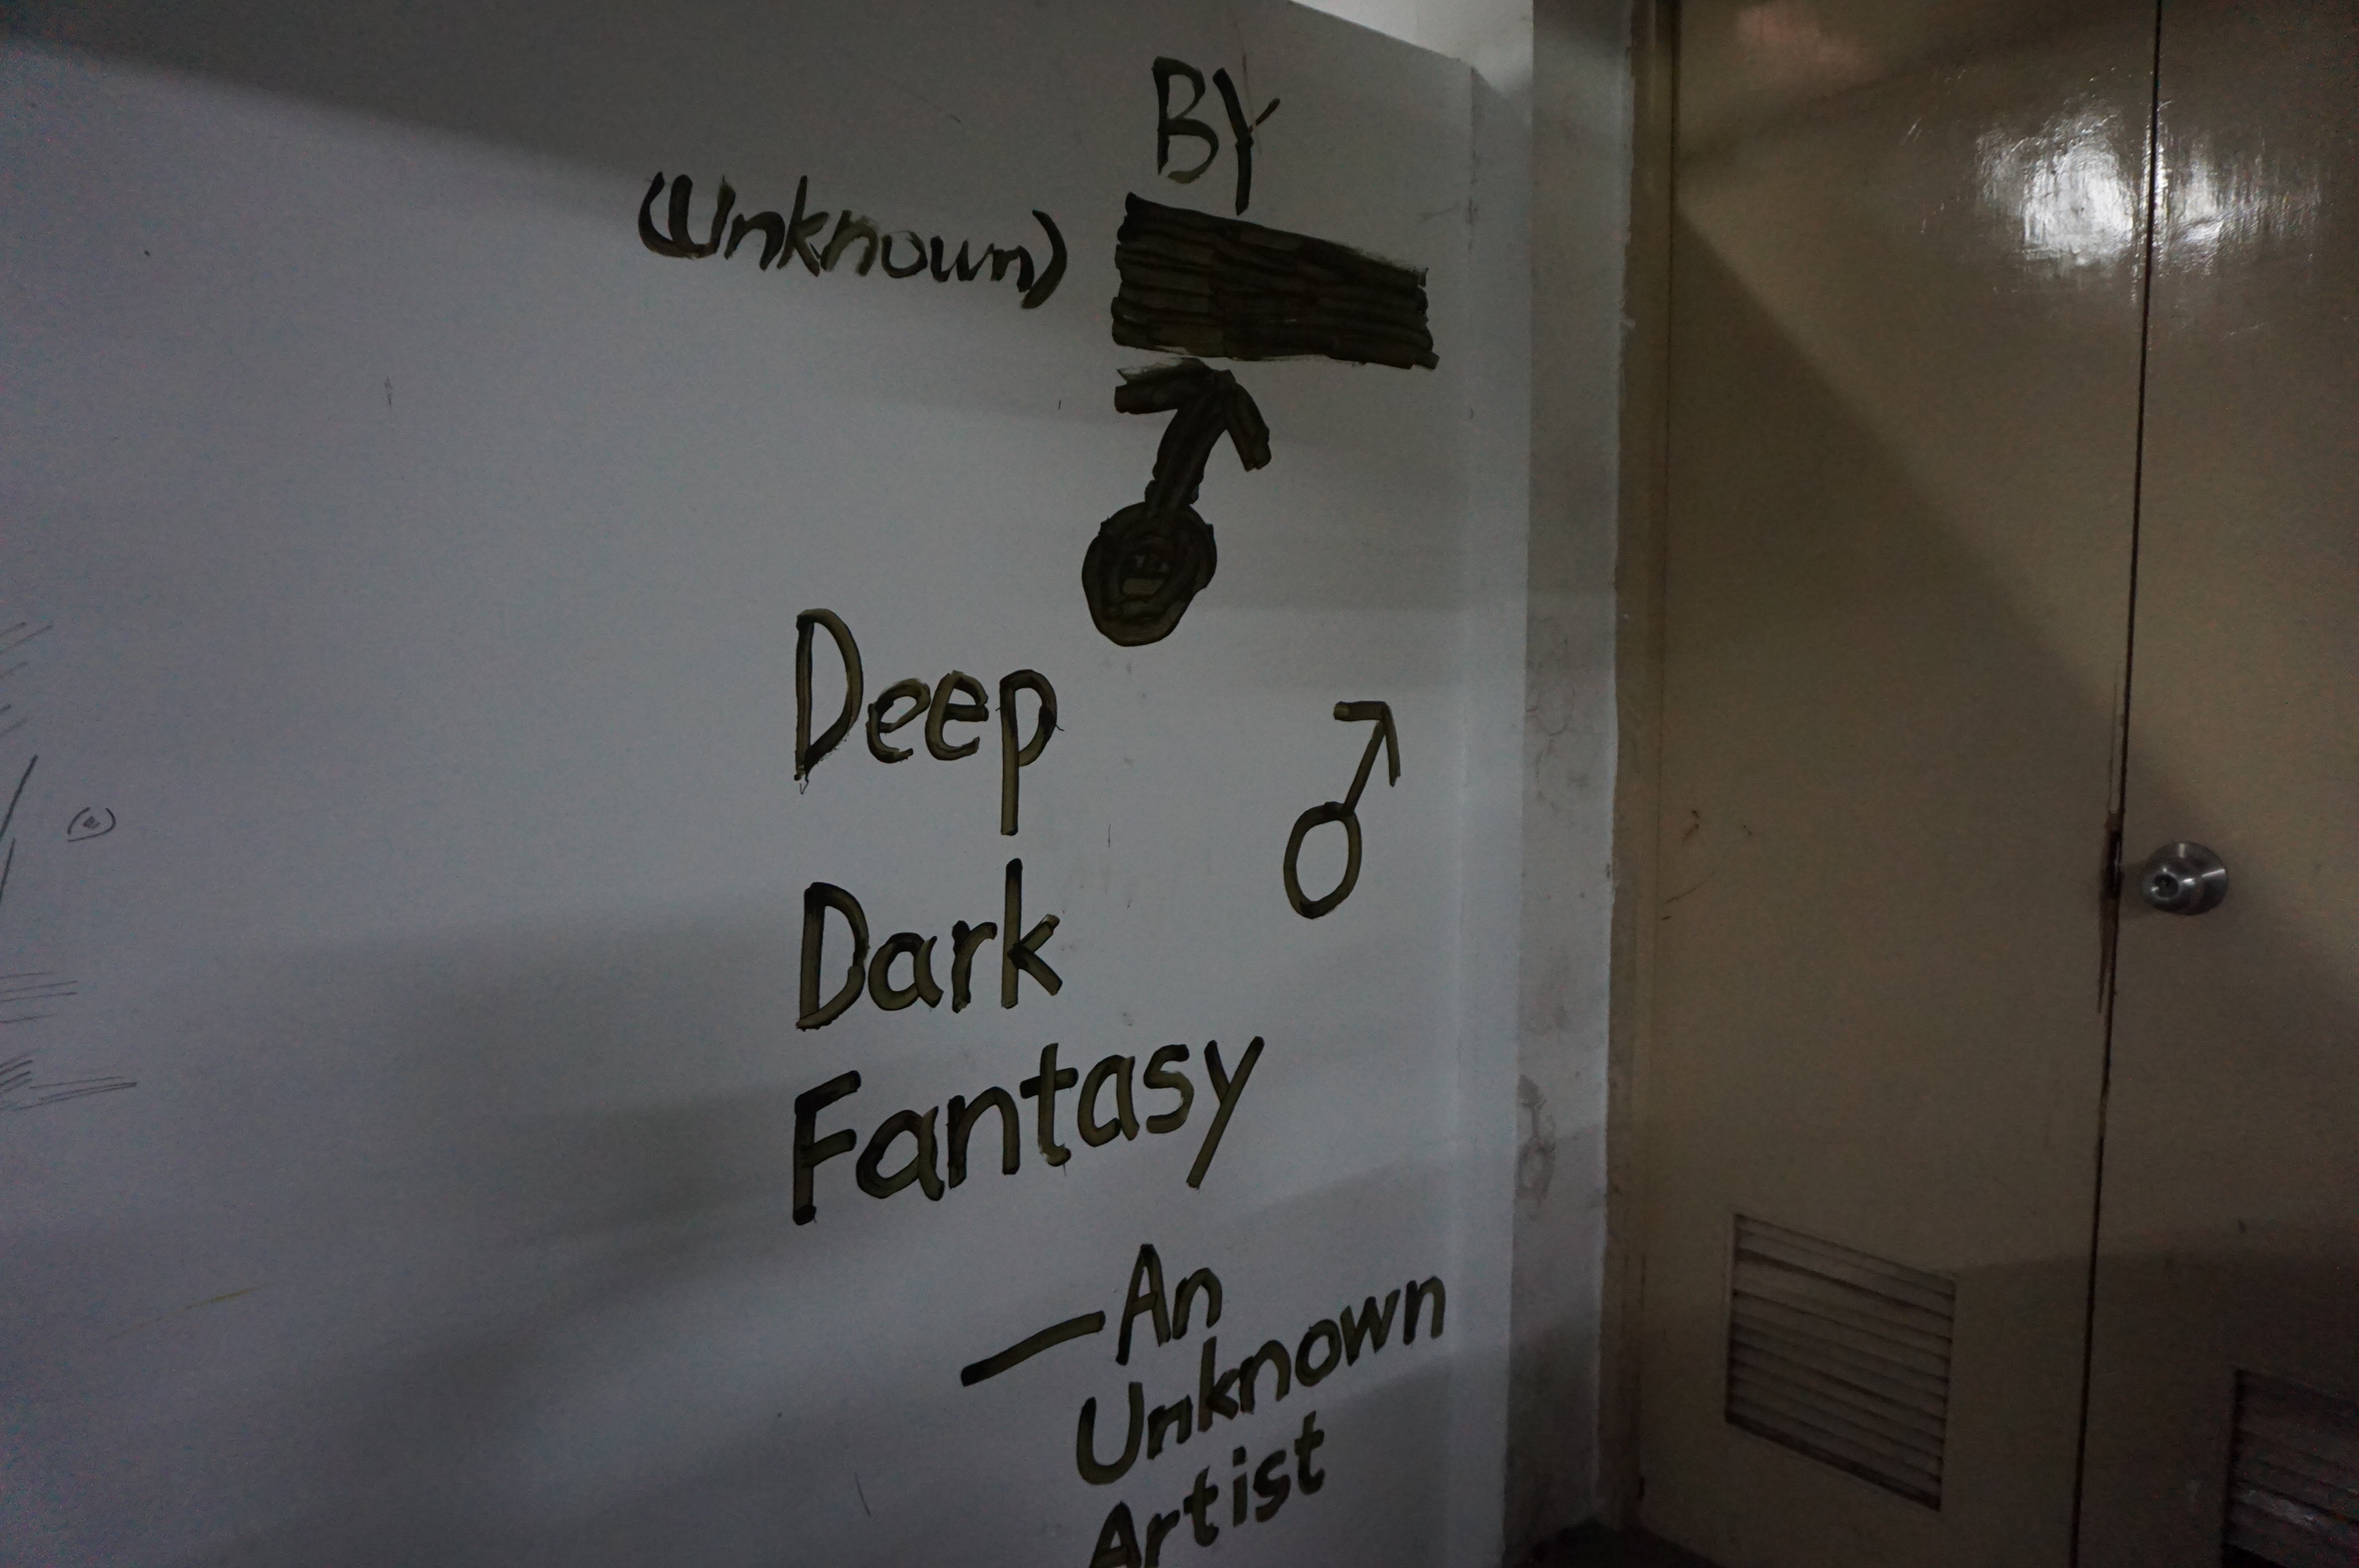 BY
(Unknown)
Deep
♂
Dark
Fantasy
—An
Unknown
Artist